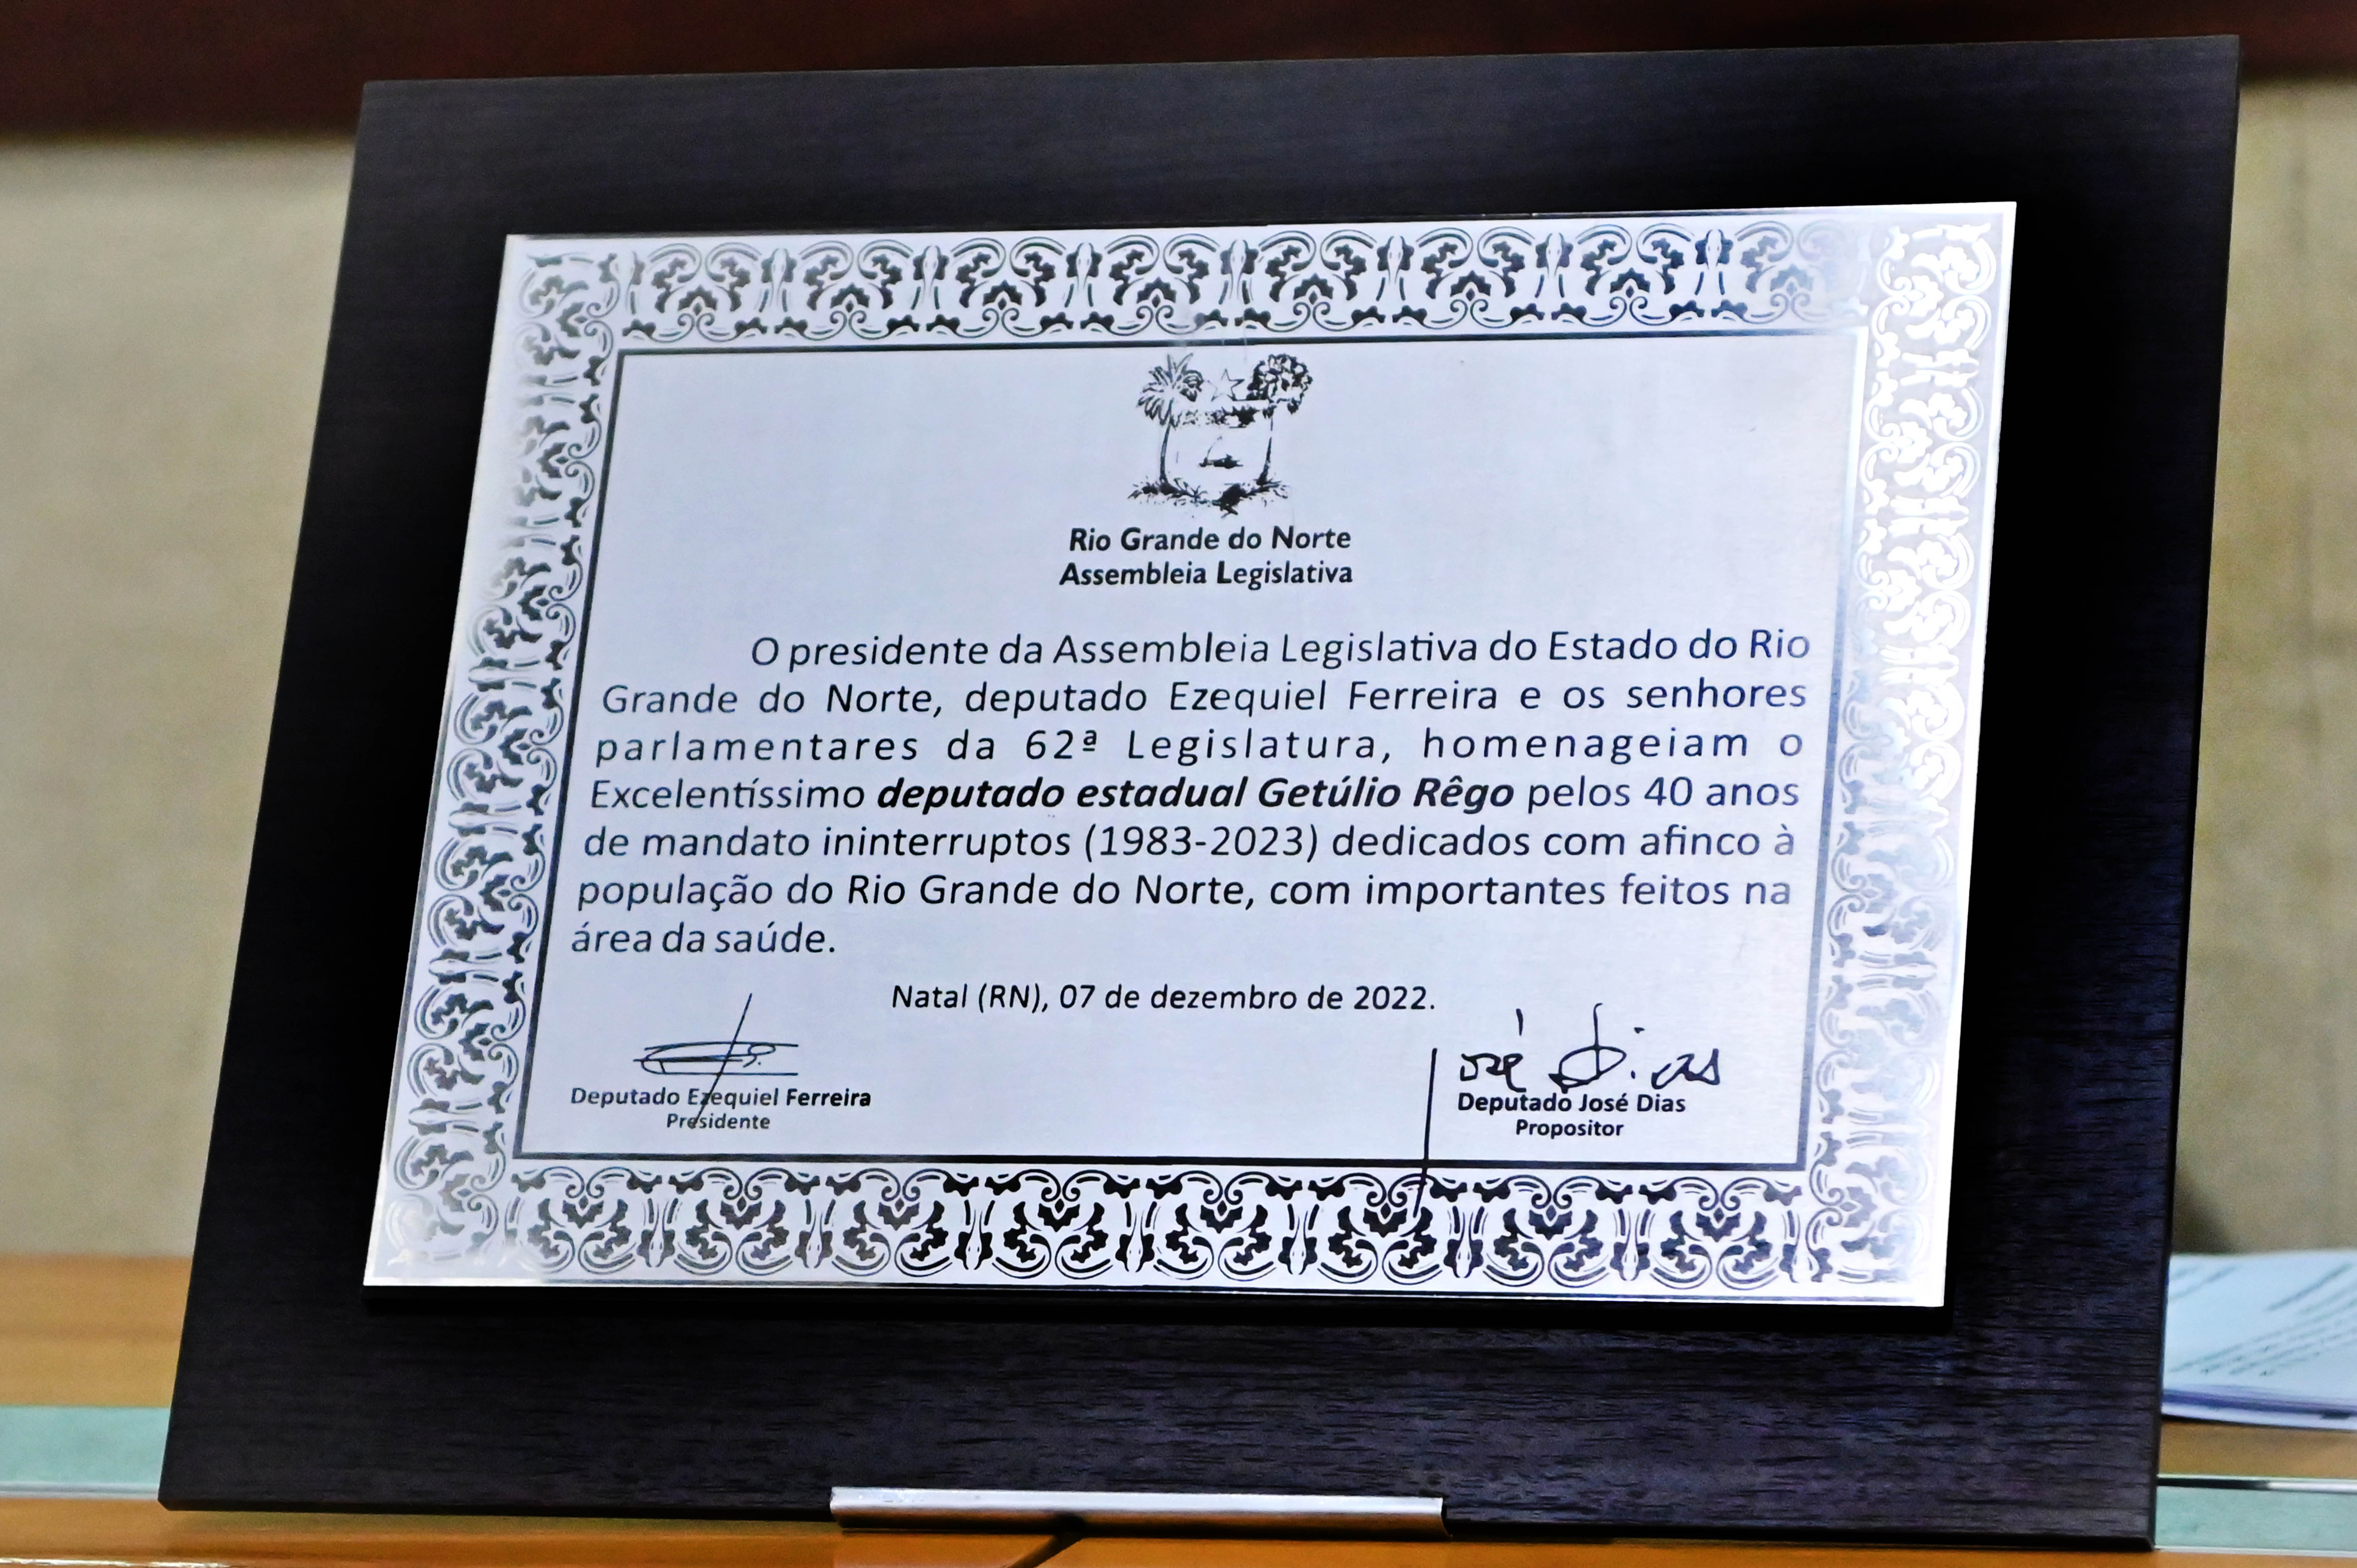 Rio Grande do Norte
Assembleia Legislativa
O presidente da Assembleia Legislativa do Estado do Rio
Grande do Norte, deputado Ezequiel Ferreira e os senhores
parlamentares da 62ª Legislatura, homenageiam o
Excelentíssimo deputado estadual Getúlio Rêgo pelos 40 anos
de mandato ininterruptos (1983-2023) dedicados com afinco à
população do Rio Grande do Norte, com importantes feitos na
área da saúde.
Natal (RN), 07 de dezembro de 2022.
José Dias
Deputado Ezequiel Ferreira
Presidente
Deputado José Dias
Propositor